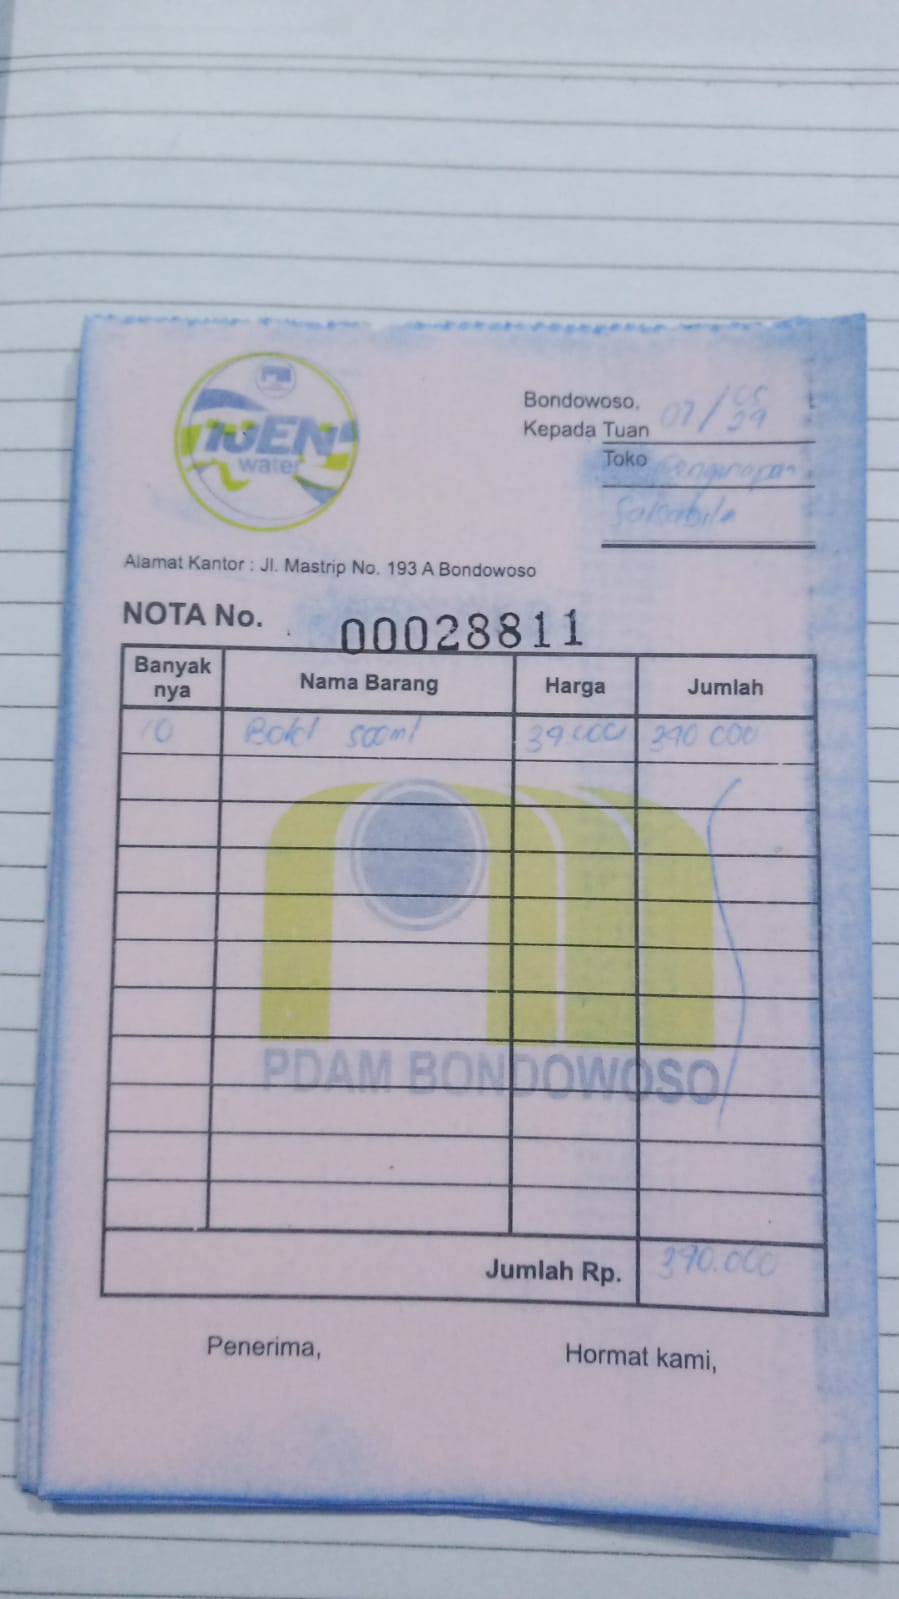 TUEN
water
Bondowoso, 07/05
Kepada Tuan
Toko Penginapan
Salsabila
Alamat Kantor : Jl. Mastrip No. 193 A Bondowoso
NOTA No. 00028811
Banyak nya Nama Barang Harga Jumlah
10 Botol 500ml 39.000 390 000
PDAM BONDOWOSO
Jumlah Rp. 390.000
Penerima, Hormat kami,